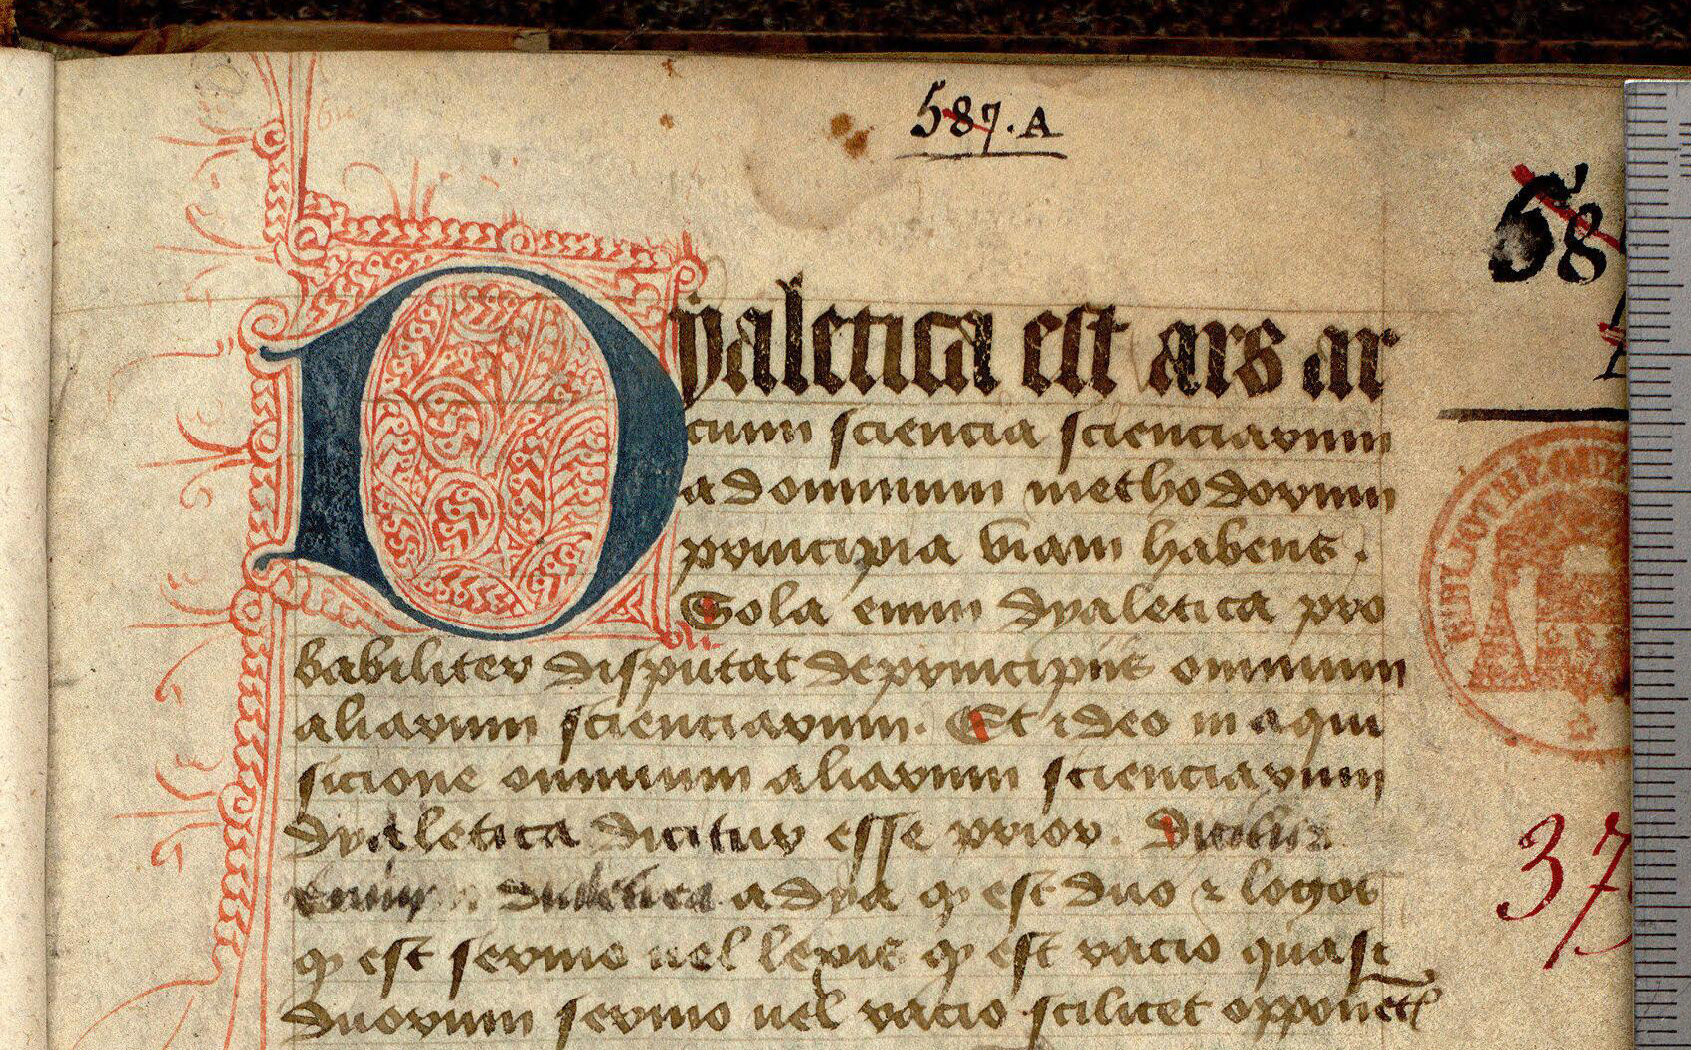 587.A
58
Dyaletica est ars ar
cium sciencia scienciarum
ad omnium methodorum
principia viam habens.
Sola enim dyaletica pro
babiliter disputat de principiis omnium
aliarum scienciarum. Et ideo in aqui
sicione omnium aliarum scienciarum
dyaletica dicitur esse prior. Dicitur
dyaletica a dya qꝫ est duo ⁊ logos
qꝫ est sermo uel lexis qꝫ est racio quasi
duorum sermo uel racio scilicet opponet
BIBLIOTHEQUE
37